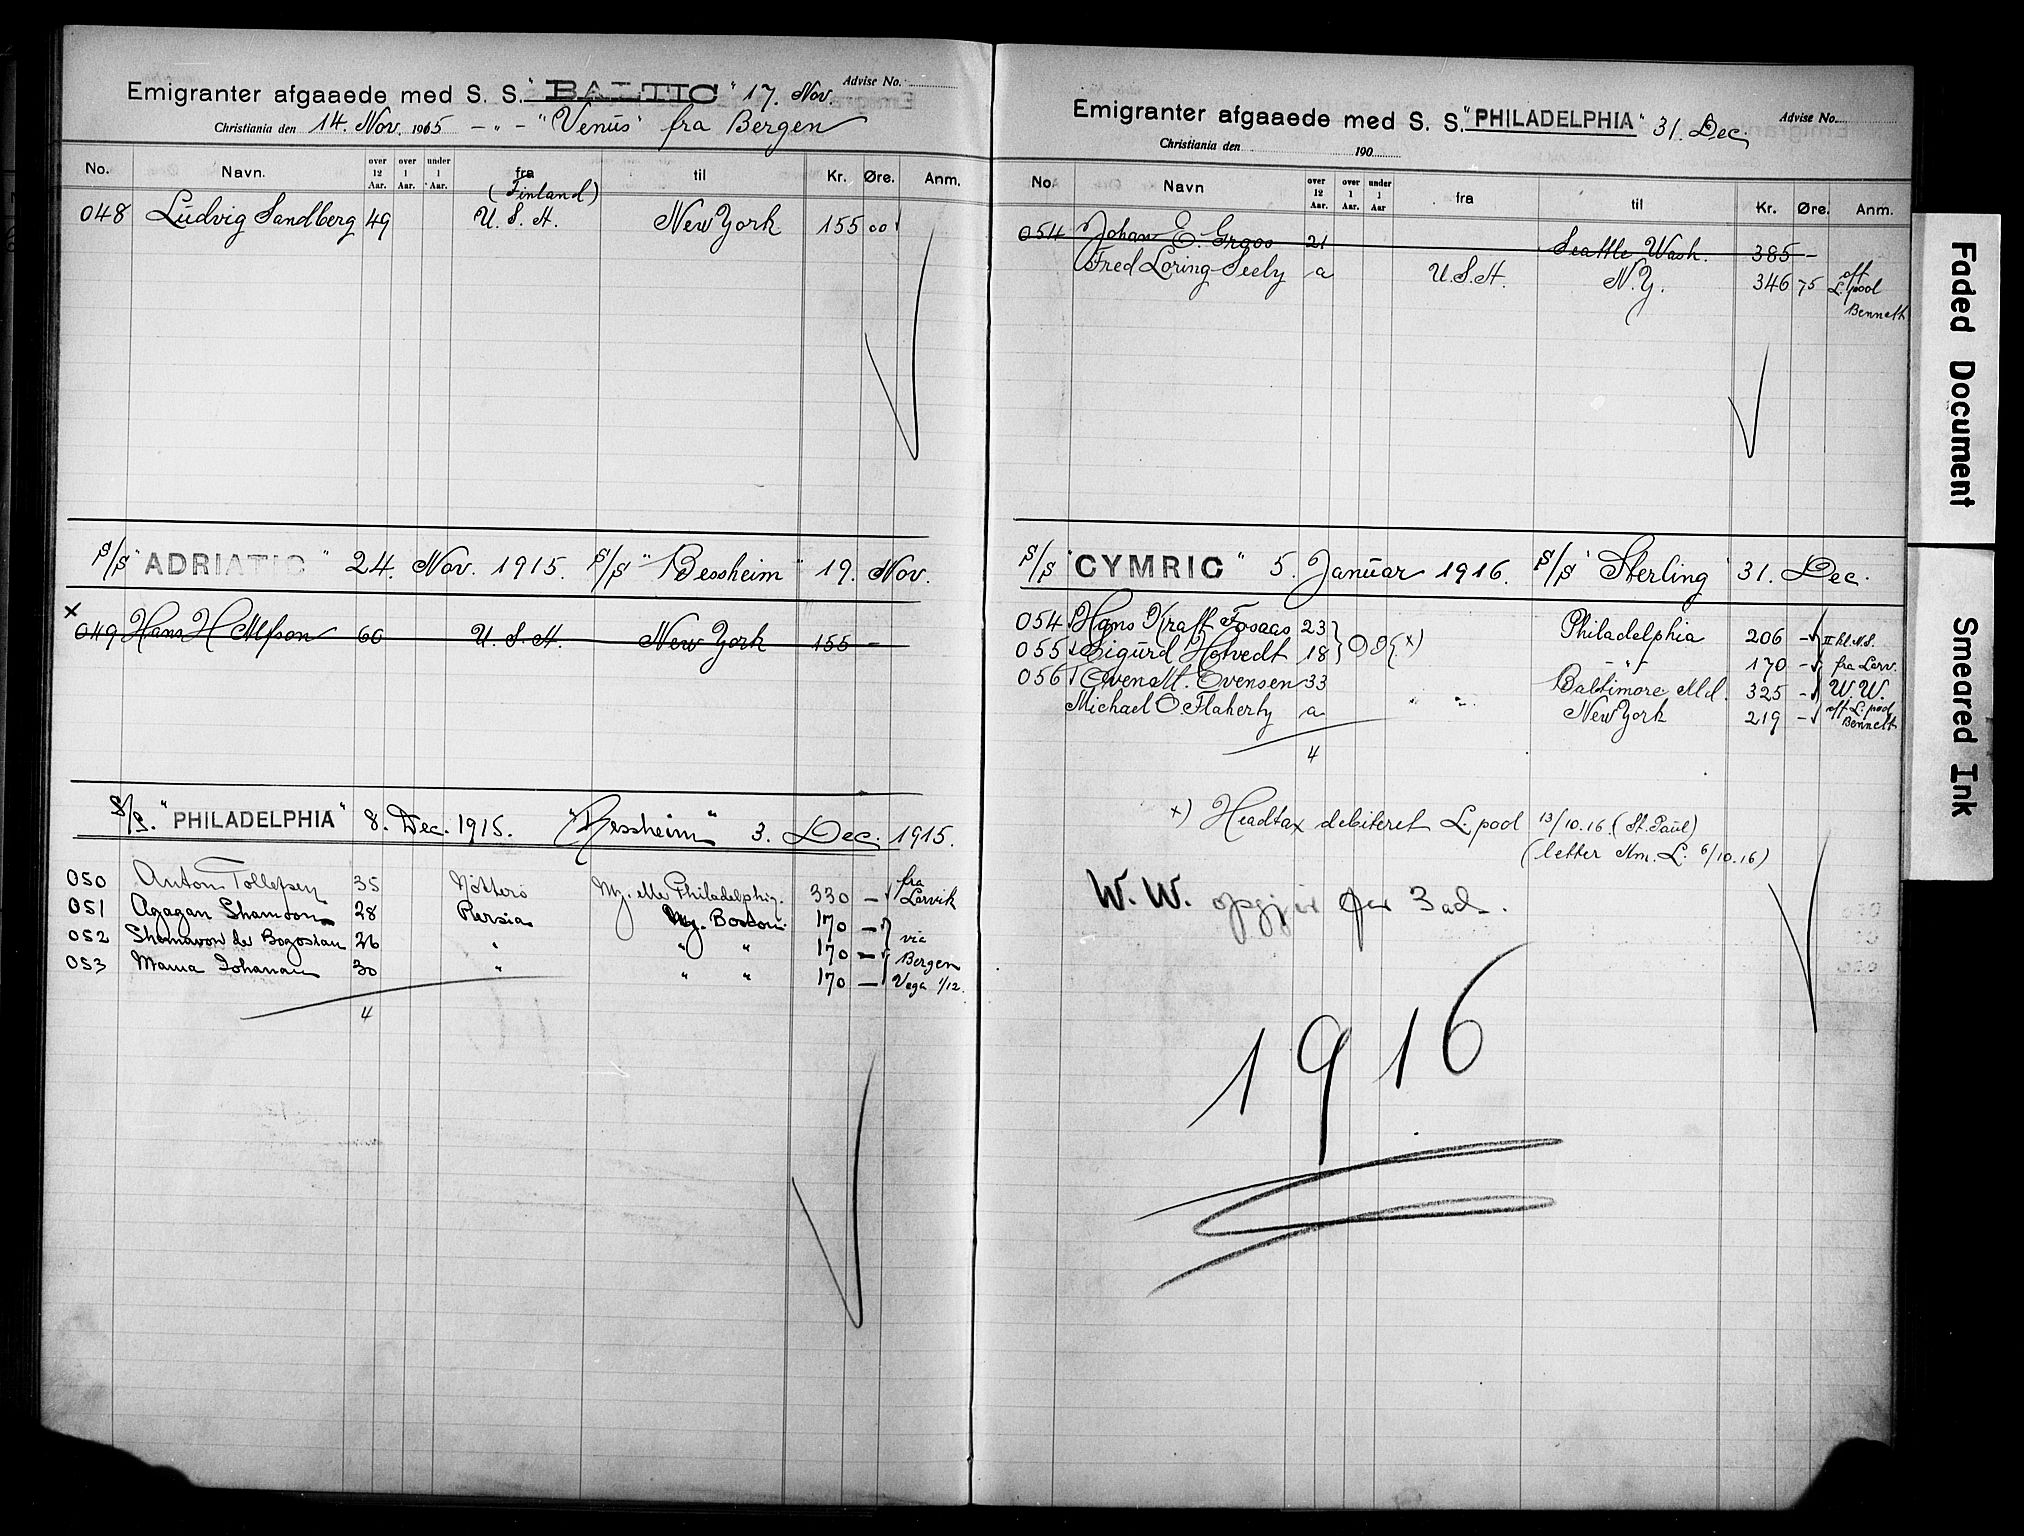 Emigranter afgaaede med S. S. "BALTIC" 17. Nov. Advise No.
Christiania den 14. Nov. 1915 - " - "Venus" fra Bergen
No. Navn. over 12 Aar. over 1 Aar. under 1 Aar. fra til Kr. Øre. Anm.
(Finland)
048 Ludvig Sandberg 49 U.S.A. New York 155 00
S/S "ADRIATIC" 24. Nov. 1915. S/S "Bessheim" 19. Nov.
x
049 Hans H Alfson 60 U.S.A. New York 155 -
S/S. "PHILADELPHIA" 8. Dec. 1915. "Bessheim" 3. Dec. 1915.
050 Anton Tollefsen 35 Nötterö Ny. elle Philadelphia. 330 - fra Larvik
051 Agagan Shamoon 28 Persia Ny. Boston 170 -
052 Shamavon der Bogostan 26 " " " 170 - via Bergen
053 Mama Johanan 30 " " " 170 - Vega 1/12.
4
Emigranter afgaaede med S. S. "PHILADELPHIA" 31. Dec. Advise No.
Christiania den 190
No. Navn over 12 Aar. over 1 Aar. under 1 Aar fra til Kr. Øre. Anm.
054 Johan E. Graos 21 Seattle Wash. 385 -
Fred Loring Seeby a U.S.A. N.Y. 346 75 off L.pool
Bennett
S/S "CYMRIC" 5. Januar 1916. S/S "Sterling" 31. Dec.
054 Hans Kraft Fosaas 23 x) Philadelphia 206 - II kl. N.S.
055 Sigurd Hotvedt 18 - " - 170 - fra Larv.
056 Even M. Evensen 33 Baltimore Md. 325 - W.W.
Michael O Flaherty a " " New York 219 - off L.pool Bennett
4
x) Headtax debiteret L.pool 13/10.16. (St. Paul)
(letter Am. L. 6/10.16)
W. W. opgjør per 3 ad.
1916
Faded Document
Smeared Ink